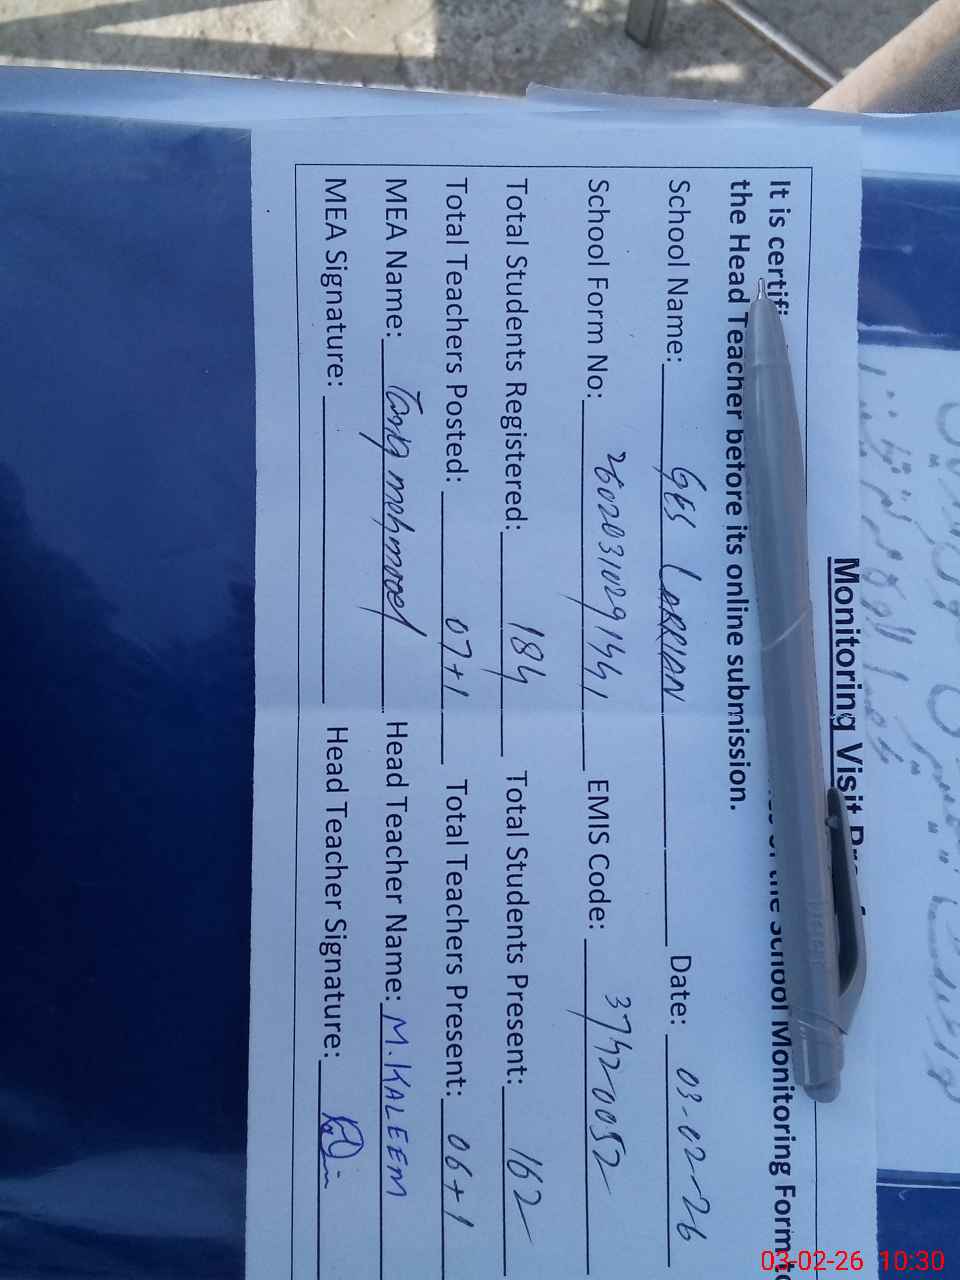 Monitoring Visit
It is certifi the School Monitoring Form to
the Head Teacher before its online submission.
School Name: GES LARRIAN Date: 03-02-26
School Form No: EMIS Code: 37420052
Total Students Registered: 184 Total Students Present: 162
Total Teachers Posted: 07+1 Total Teachers Present: 06+1
MEA Name: Tariq mehmood Head Teacher Name: M.KALEEM
MEA Signature: Head Teacher Signature:
03-02-26 10:30